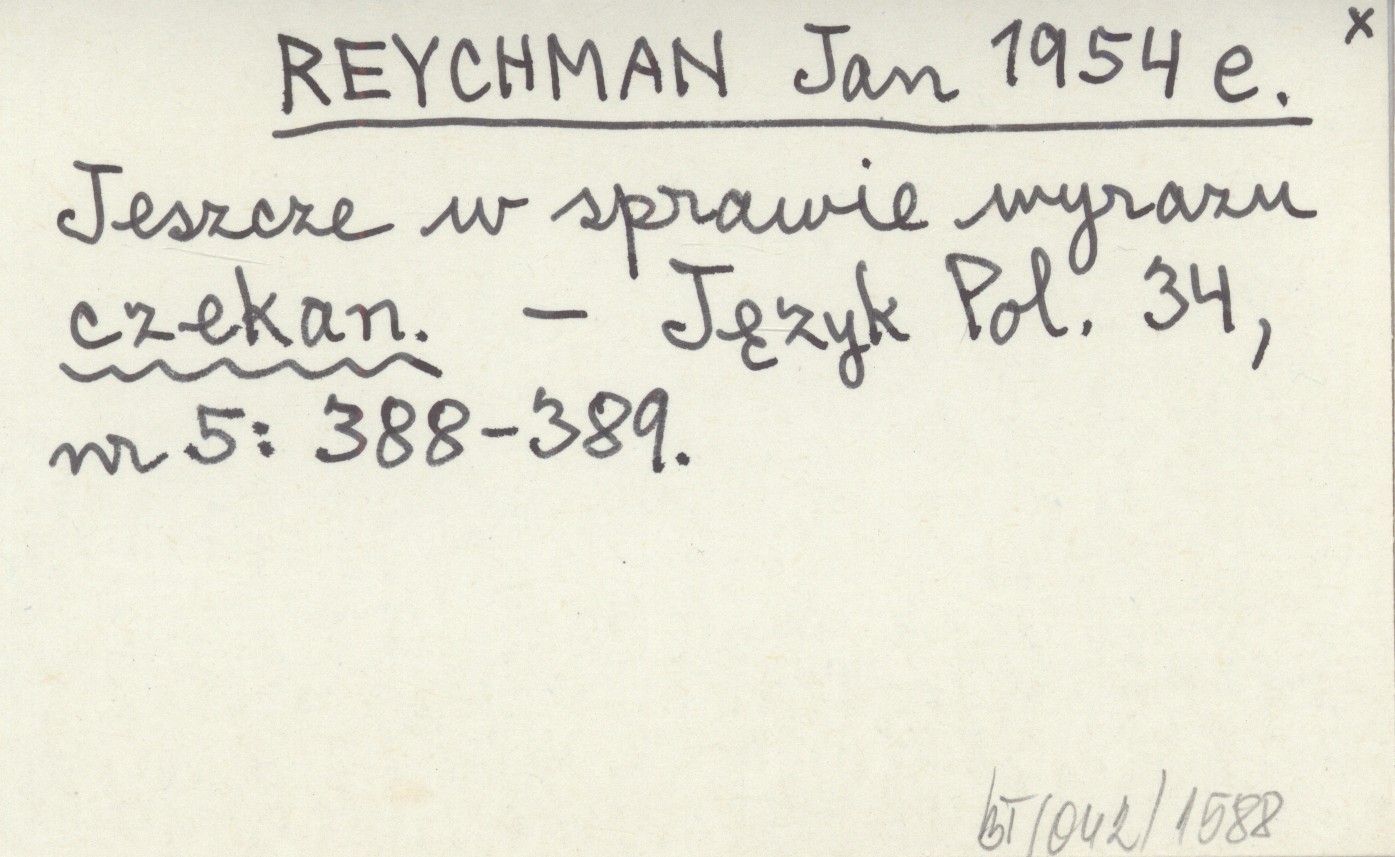 x
REYCHMAN Jan 1954 e.
Jeszcze w sprawie wyrazu
czekan. – Język Pol. 34,
nr 5: 388-389.
BT/042/1588